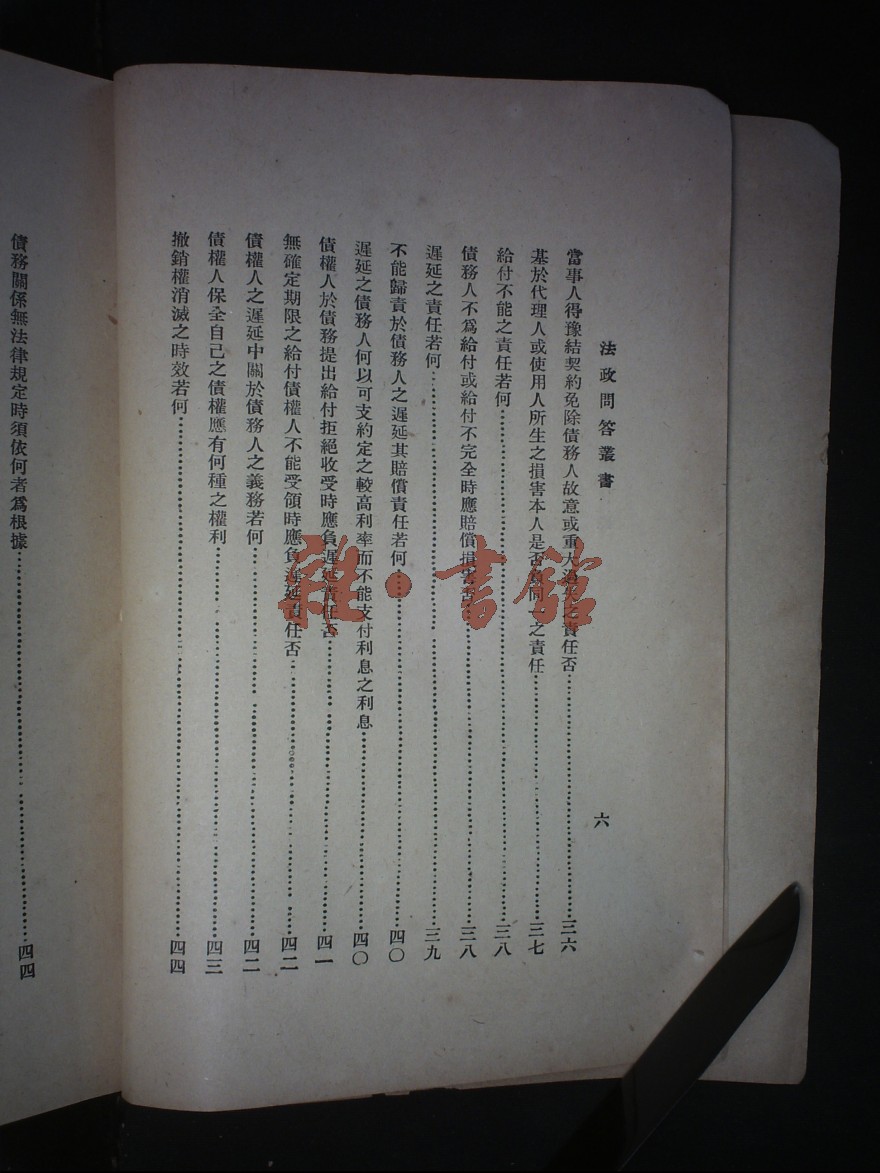 法政問答叢書
六
當事人得豫結契約免除債務人故意或重大過失之責任否……三六
基於代理人或使用人所生之損害本人是否負同一之責任……三七
給付不能之責任若何……三八
債務人不爲給付或給付不完全時應賠償損害否……三八
遲延之責任若何……三九
不能歸責於債務人之遲延其賠償責任若何……四〇
遲延之債務人何以可支約定之較高利率而不能支付利息之利息……四〇
債權人於債務提出給付拒絕收受時應負遲延責任否……四一
無確定期限之給付債權人不能受領時應負遲延責任否……四二
債權人之遲延中關於債務人之義務若何……四二
債權人保全自己之債權應有何種之權利……四三
撤銷權消滅之時效若何……四四
債務關係無法律規定時須依何者爲根據……四四
雜·書館